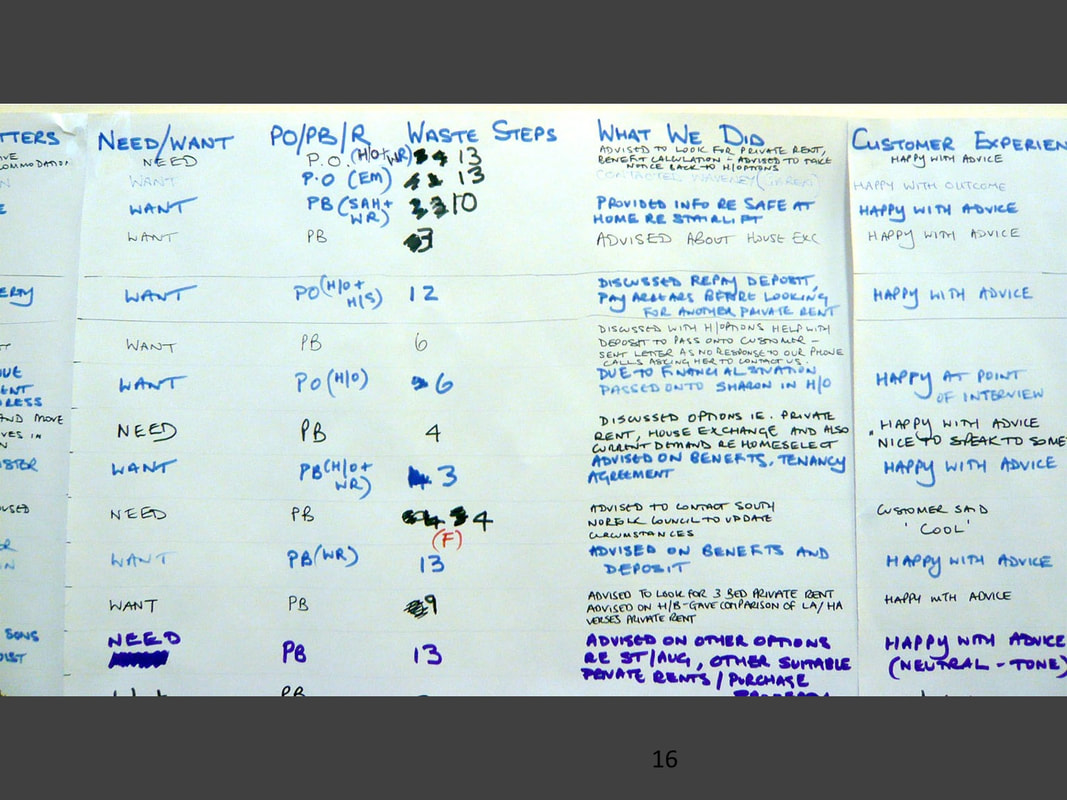 TTERS NEED/WANT PO/PB/R WASTE STEPS WHAT WE DID CUSTOMER EXPERIEN
NEED P.O. (H/O+WR) 13 ADVISED TO LOOK FOR PRIVATE RENT, HAPPY WITH ADVICE
BENEFIT CALCULATION - ADVISED TO TAKE
NOTICE BACK TO H/OPTIONS
WANT P.O (EM) 13 CONTACTED WAVENEY HAPPY WITH OUTCOME
WANT PB (SAH+ 10 PROVIDED INFO RE SAFE AT HAPPY WITH ADVICE
WR) HOME RE STAIRLIFT
WANT PB 3 ADVISED ABOUT HOUSE EXC HAPPY WITH ADVICE
ERTY WANT PO (H/O+ 12 DISCUSSED REPAY DEPOSIT, HAPPY WITH ADVICE
H/S) PAY ARREARS BEFORE LOOKING
FOR ANOTHER PRIVATE RENT
WANT PB 6 DISCUSSED WITH H/OPTIONS HELP WITH
DEPOSIT TO PASS ONTO CUSTOMER -
SENT LETTER AS NO RESPONSE TO OUR PHONE
CALLS ASKING HER TO CONTACT US.
WANT PO (H/O) 6 DUE TO FINANCIAL SITUATION HAPPY AT POINT
ENT PASSED ONTO SHARON IN H/O OF INTERVIEW
RESS
AND MOVE NEED PB 4 DISCUSSED OPTIONS IE. PRIVATE HAPPY WITH ADVICE
VES IN RENT, HOUSE EXCHANGE AND ALSO NICE TO SPEAK TO SOME
CURRENT DEMAND RE HOMESELECT
ISTER WANT PB (H/O+ 3 ADVISED ON BENEFITS, TENANCY HAPPY WITH ADVICE
WR) AGREEMENT
NEED PB 4 ADVISED TO CONTACT SOUTH CUSTOMER SAID
(F) NORFOLK COUNCIL TO UPDATE 'COOL'
CIRCUMSTANCES
WANT PB (WR) 13 ADVISED ON BENEFITS AND HAPPY WITH ADVICE
DEPOSIT
WANT PB 9 ADVISED TO LOOK FOR 3 BED PRIVATE RENT HAPPY WITH ADVICE
ADVISED ON H/B - GAVE COMPARISON OF LA/HA
VERSES PRIVATE RENT
SONS NEED PB 13 ADVISED ON OTHER OPTIONS HAPPY WITH ADVICE
RE ST/AUG, OTHER SUITABLE (NEUTRAL - TONE)
PRIVATE RENTS / PURCHASE
PB
16